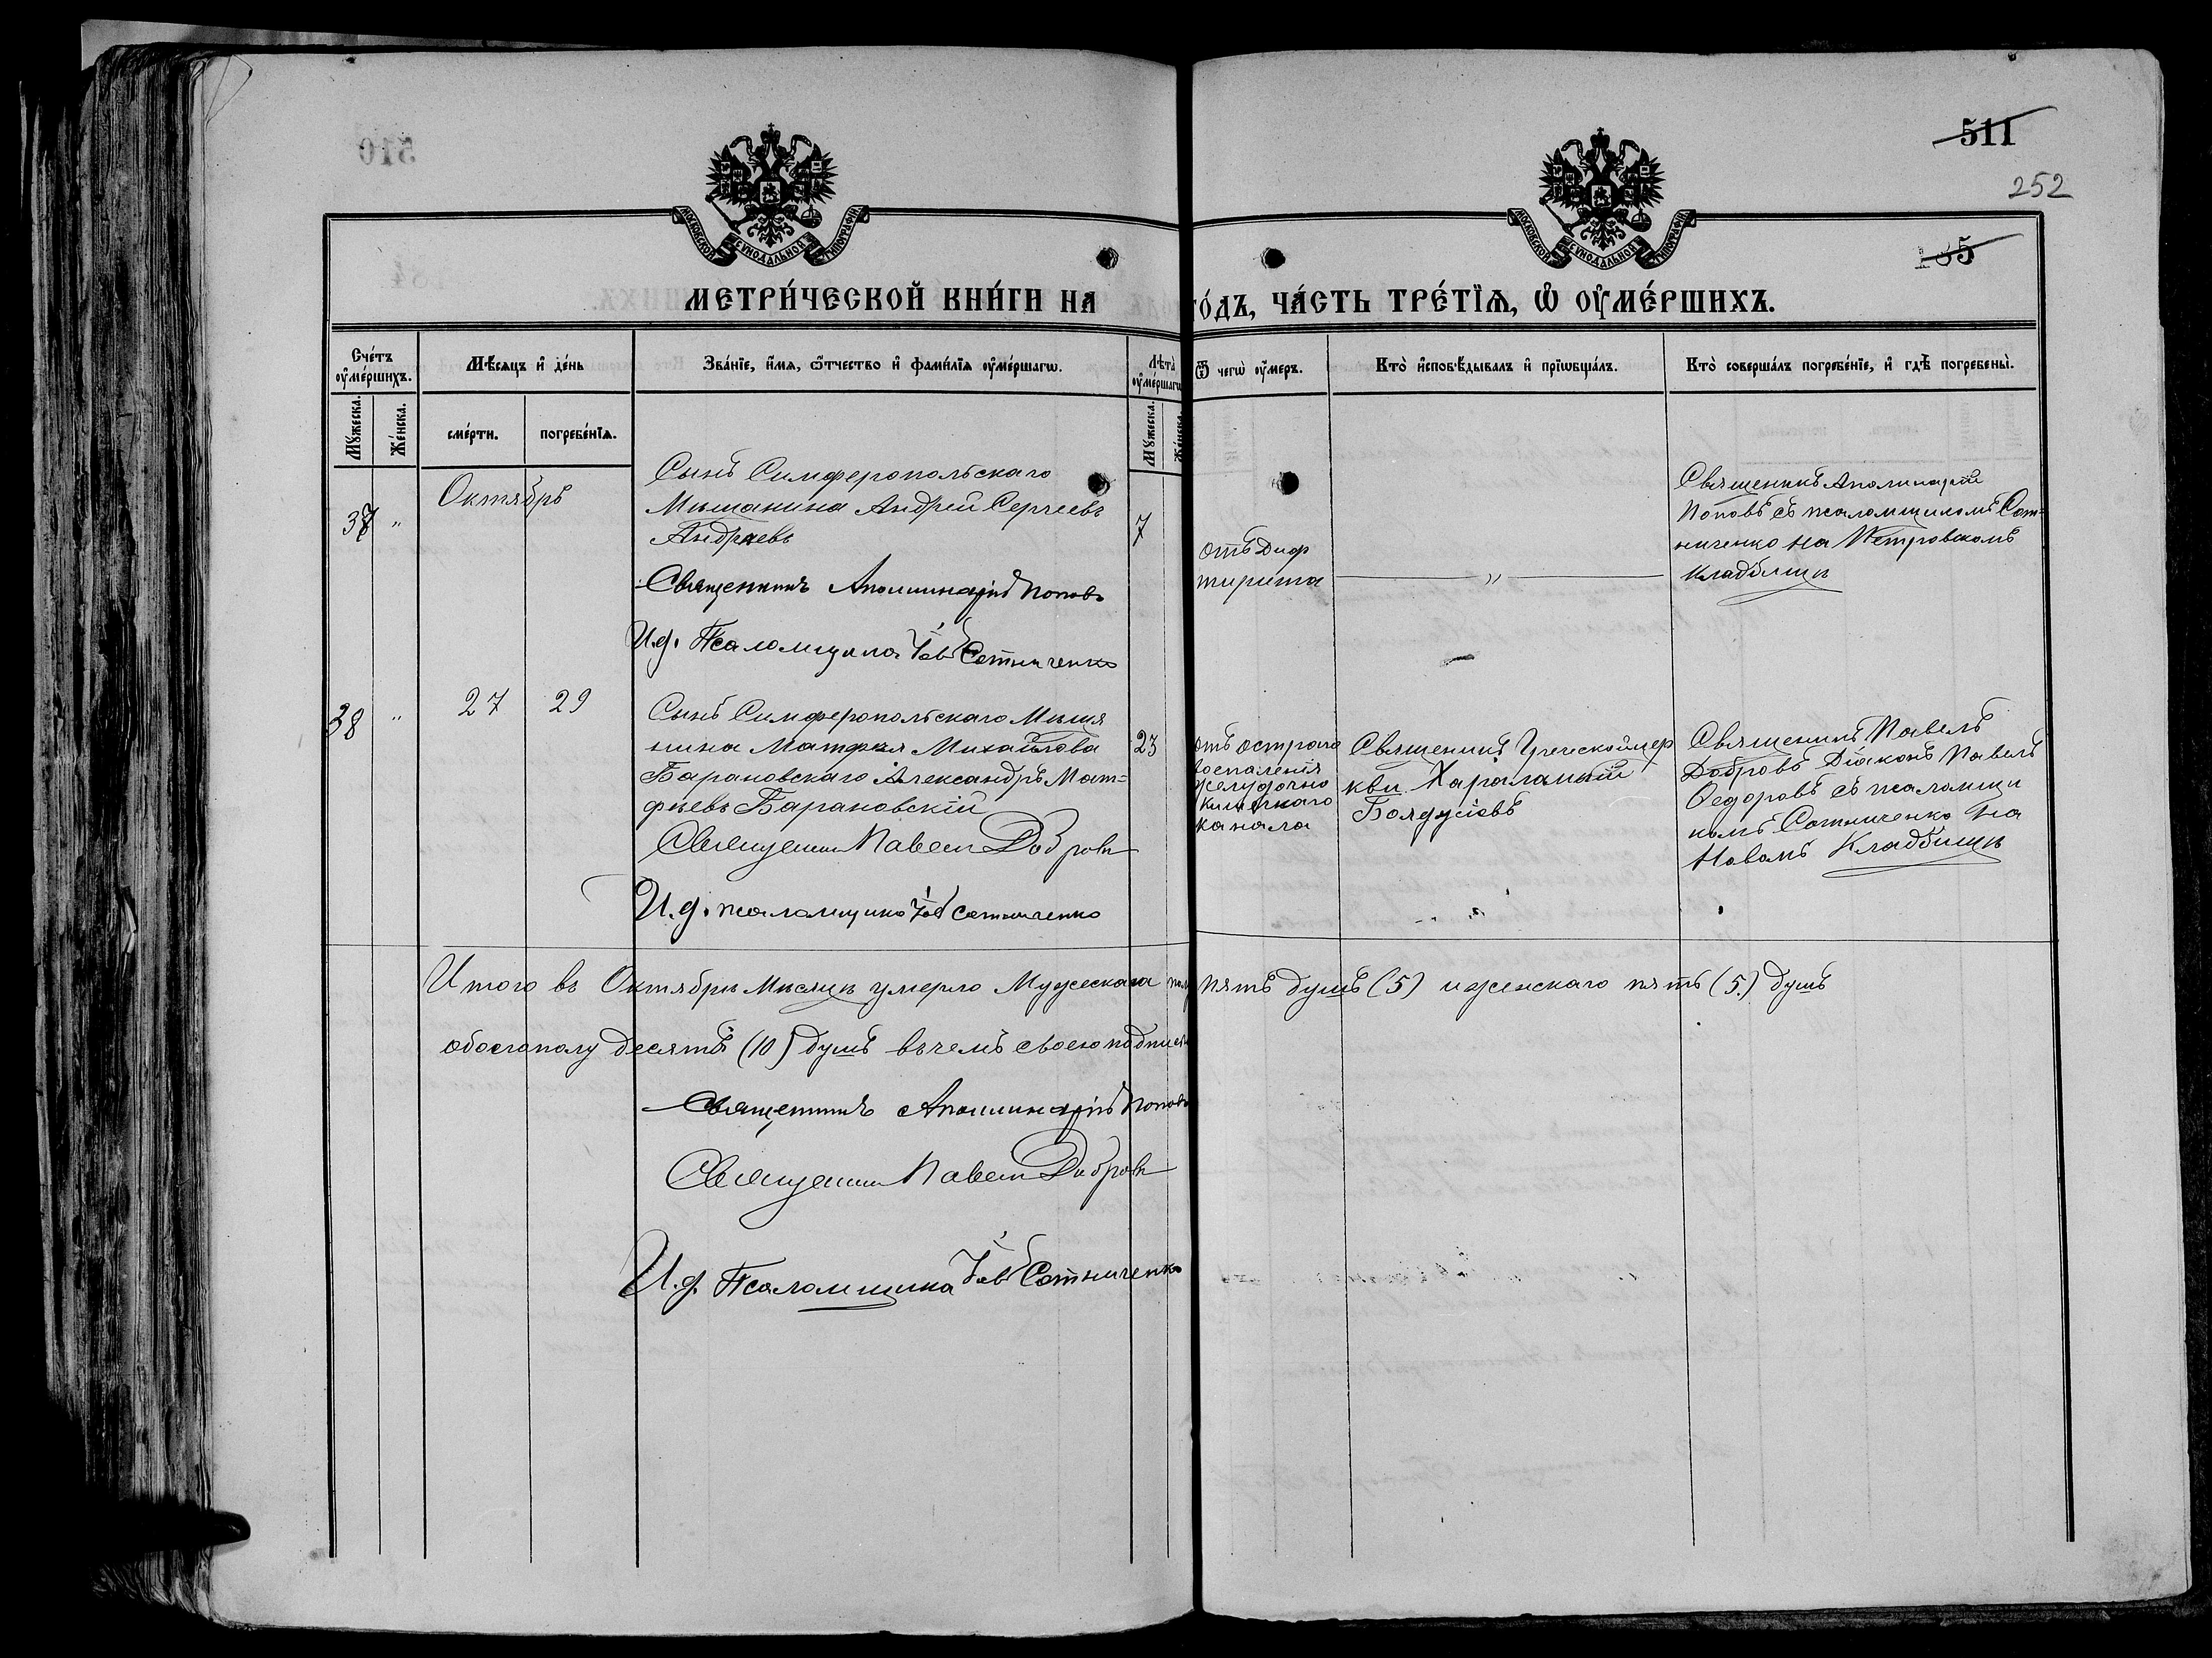 511
252
135
МОСКОВСКОЙ СѴНОДАЛЬНОЙ ТИПОГРАФІИ
МОСКОВСКОЙ СѴНОДАЛЬНОЙ ТИПОГРАФІИ
МЕТРИ́ЧЕСКОЙ КНИ́ГИ НА го́дъ, ЧА́СТЬ ТРЕ́ТЇѦ, Ѡ҆ ОУ҆МЕ́РШИХЪ.
Сче́тъ оу҆ме́ршихъ.
Мѣ́сѧцъ и҆ де́нь
Зва́нїе, и҆́мѧ, ѻ҆́тчество и҆ фами́лїѧ оу҆ме́ршагѡ.
Лѣ̑та оу҆ме́ршагѡ
Ѿ чегѡ̀ оу҆́меръ.
Кто̀ и҆сповѣ́дывалъ и҆ прїѡбща́лъ.
Кто̀ соверша́лъ погребе́нїе, и҆ гдѣ̀ погребены̀.
Мꙋ́жеска.
Же́нска.
сме́рти.
погребе́нїѧ.
Мꙋ́жеска.
Же́нска.
37 "
Октябрь
Сынъ Симферопольскаго
Мѣщанина Андрей Сергѣевъ
Андреевъ
Священникъ Аполлинарій Поповъ
И.д. Псаломщика Іов Сотниченко
7
отъ Диф
терита
"
Священикъ Аполинарій
Поповъ съ псаломщикомъ Сот-
ниченко на Петровскомъ
Кладбищѣ
38 "
27 29
Сынъ Симферопольскаго Мѣща
нина Матфея Михайлова
Барановскаго Александръ Мат=
фѣевъ Барановскій
Священник Павел Добровъ
И.д. псаломщика Іов Сотниченко
23
отъ остраго
воспаленія
желудочно
кишечнаго
канала
Священикъ Греческой цер
кви Харалампій
Священикъ Павелъ
Добровъ Діаконъ Павелъ
Ѳедоровъ съ псаломщи
комъ Сотниченко на
Новомъ Кладбищѣ
Итого въ Октябрѣ мѣсяцѣ умерло Мужескаго полу пять душъ (5) и женскаго пять (5) душъ
обоего полу десять (10) душъ въ чемъ своею подписью
Священникъ Аполлинарій Поповъ
Священник Павел Добровъ
И.д. Псаломщика Іов Сотниченко